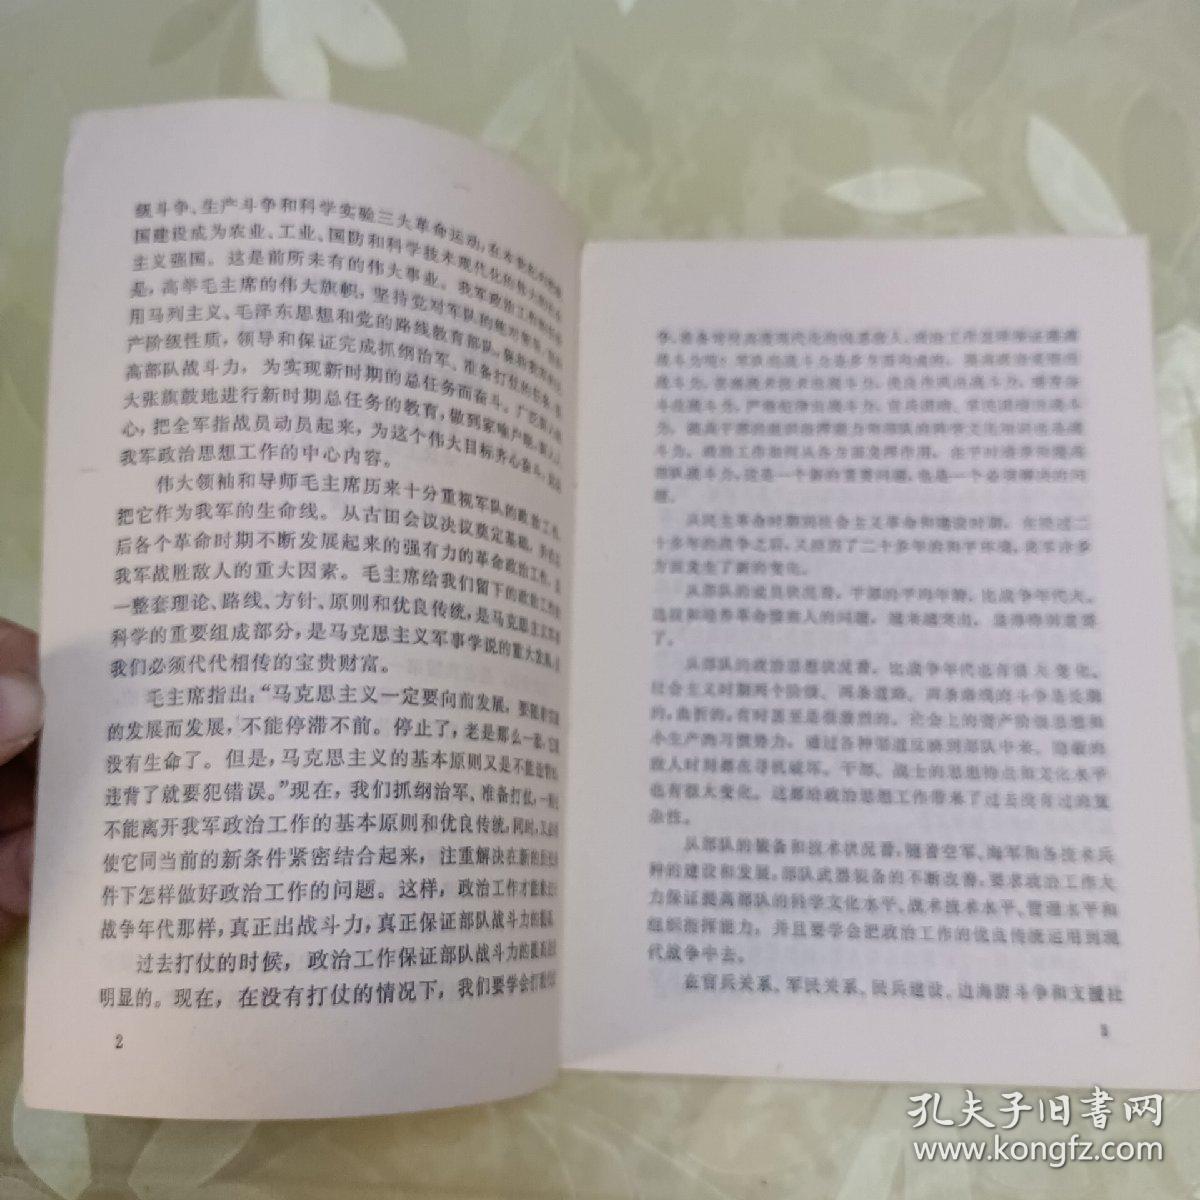 级斗争、生产斗争和科学实验三大革命运动，在本世纪内把我
国建设成为农业、工业、国防和科学技术现代化的伟大的社会
主义强国。这是前所未有的伟大事业。我军政治工作的
是，高举毛主席的伟大旗帜，坚持党对军队的绝对领导，
用马列主义、毛泽东思想和党的路线教育部队，保持
产阶级性质，领导和保证完成抓纲治军、准备打仗的任务，
高部队战斗力，为实现新时期的总任务而奋斗。广泛
大张旗鼓地进行新时期总任务的教育，做到家喻户晓，
心，把全军指战员动员起来，为这个伟大目标齐心奋斗，
我军政治思想工作的中心内容。
伟大领袖和导师毛主席历来十分重视军队的政治工作，
把它作为我军的生命线。从古田会议决议奠定基础，
后各个革命时期不断发展起来的强有力的革命政治工作，是
我军战胜敌人的重大因素。毛主席给我们留下的政治工作的
一整套理论、路线、方针、原则和优良传统，是马克思主义军事
科学的重要组成部分，是马克思主义军事学说的重大发展，是
我们必须代代相传的宝贵财富。
毛主席指出：“马克思主义一定要向前发展，要随着实践
的发展而发展，不能停滞不前。停止了，老是那么一套，它就
没有生命了。但是，马克思主义的基本原则又是不能违背的，
违背了就要犯错误。”现在，我们抓纲治军、准备打仗，一刻也
不能离开我军政治工作的基本原则和优良传统，同时，又必须
使它同当前的新条件紧密结合起来，注重解决在新的历史条
件下怎样做好政治工作的问题。这样，政治工作才能象过去
战争年代那样，真正出战斗力，真正保证部队战斗力的提高。
过去打仗的时候，政治工作保证部队战斗力的提高是很
明显的。现在，在没有打仗的情况下，我们要学会打现代战
2
争，准备对付高度现代化的凶恶敌人，政治工作怎样保证提高
战斗力呢？军队的战斗力是多方面构成的。提高政治觉悟出
战斗力，苦练战术技术出战斗力，优良作风出战斗力，艰苦奋
斗出战斗力，严格纪律出战斗力，官兵团结、军民团结出战斗
力，提高干部的组织指挥能力和部队的科学文化知识也是战
斗力。政治工作如何从各方面发挥作用，在平时培养和提高
部队战斗力，这是一个新的重要问题，也是一个必须解决的问
题。
从民主革命时期到社会主义革命和建设时期，在经过二
十多年的战争之后，又经历了二十多年的和平环境，我军许多
方面发生了新的变化。
从部队的成员状况看，干部的平均年龄，比战争年代大。
选拔和培养革命接班人的问题，越来越突出，显得特别重要
了。
从部队的政治思想状况看，比战争年代也有很大变化。
社会主义时期两个阶级、两条道路、两条路线的斗争是长期
的，曲折的，有时甚至是很激烈的。社会上的资产阶级思想和
小生产的习惯势力，通过各种渠道反映到部队中来。隐蔽的
敌人时刻都在寻机破坏。干部、战士的思想特点和文化水平
也有很大变化。这都给政治思想工作带来了过去没有过的复
杂性。
从部队的装备和技术状况看，随着空军、海军和各技术兵
种的建设和发展，部队武器装备的不断改善，要求政治工作大
力保证提高部队的科学文化水平、战术技术水平、管理水平和
组织指挥能力，并且要学会把政治工作的优良传统运用到现
代战争中去。
在官兵关系、军民关系、民兵建设、边海防斗争和支援社
3
孔夫子旧书网
www.kongfz.com